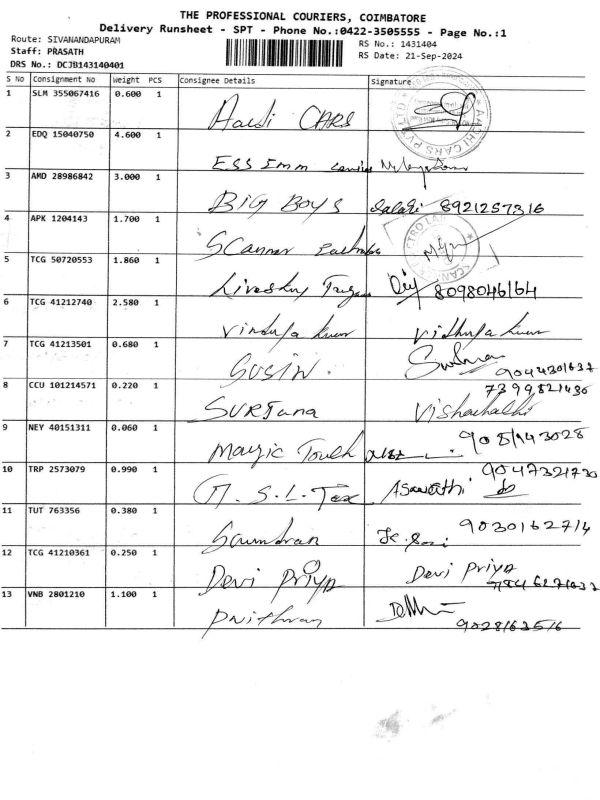 THE PROFESSIONAL COURIERS, COIMBATORE
Delivery Runsheet - SPT - Phone No.:0422-3505555 - Page No.:1
Route: SIVANANDAPURAM
RS No.: 1431404
Staff: PRASATH
RS Date: 21-Sep-2024
DRS No.: DCJB143140401
S No Consignment No Weight PCS Consignee Details Signature
1 SLM 355067416 0.600 1 CARS
AADHI CARS PVT LTD
2 EDQ 15040750 4.600 1 ESS Imm
3 AMD 28986842 3.000 1 BIG BOYS 8921257316
4 APK 1204143 1.700 1 SCanner
5 TCG 50720553 1.860 1 8098046164
6 TCG 41212740 2.580 1
7 TCG 41213501 0.680 1 SUSIN. 9044301637
8 CCU 101214571 0.220 1 SURJana 7399821436 Vishachalhi
9 NEY 40151311 0.060 1 Magic Touch 908143028
10 TRP 2573079 0.990 1 M.S.L. Tex Aswathi 9047321730
11 TUT 763356 0.380 1 Soundran 9030162714
12 TCG 41210361 0.250 1 Devi Priya Devi Priya
13 VNB 2801210 1.100 1 9028163516